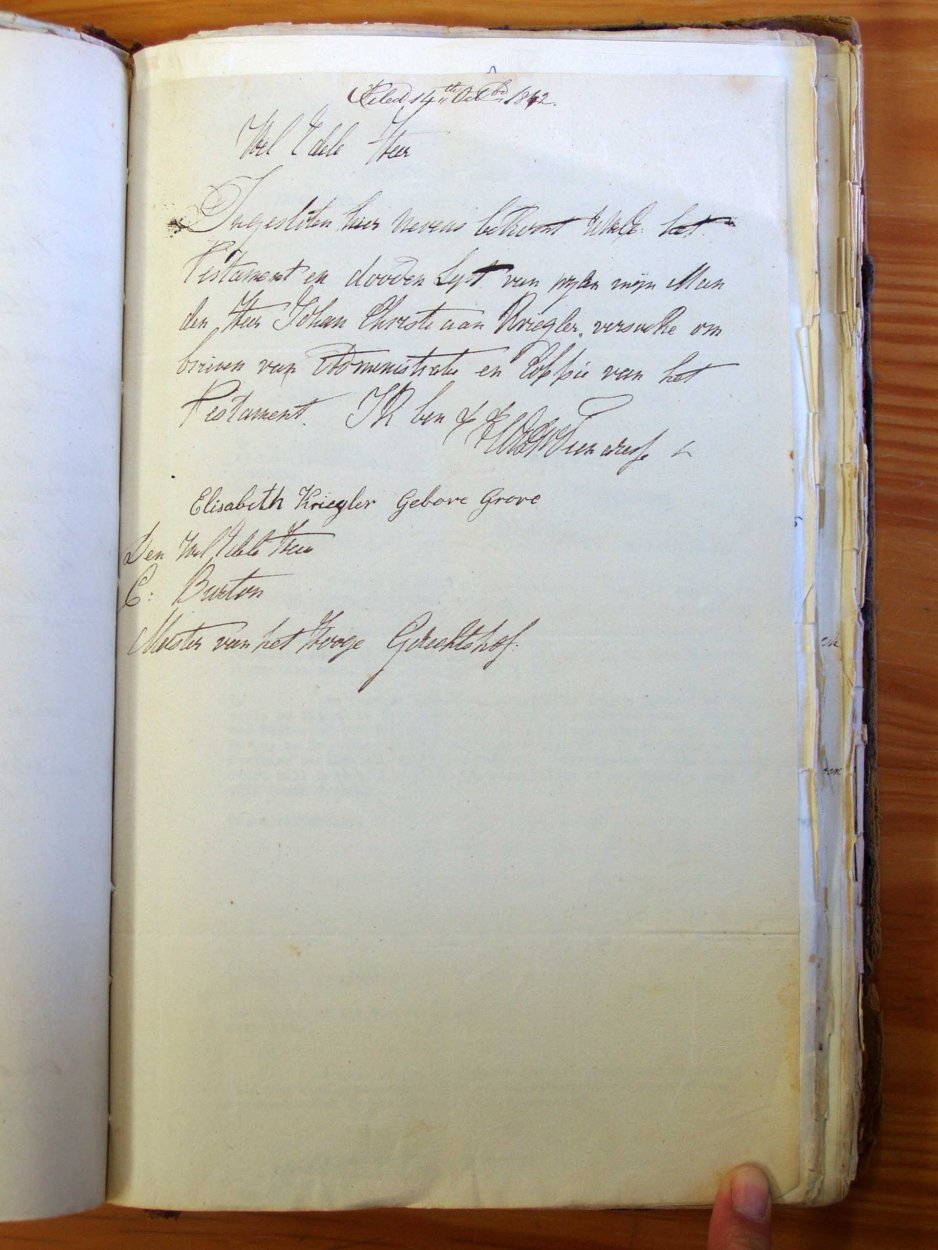 Filed 14th Octbr 1842
Wel Edele Heer
Ingesloten hier nevens bekomt UWelE: het
Testament en dooden Lyst van myn Man
den Heer Johan Christiaan Kriegler, versoeke om
brieven van Administratie en Coppie van het
Testament. Ik ben
Elisabeth Kriegler Gebore Grove
Den Wel Edele Heer
C: Burton
Meester van het Hooge Gerechtshof